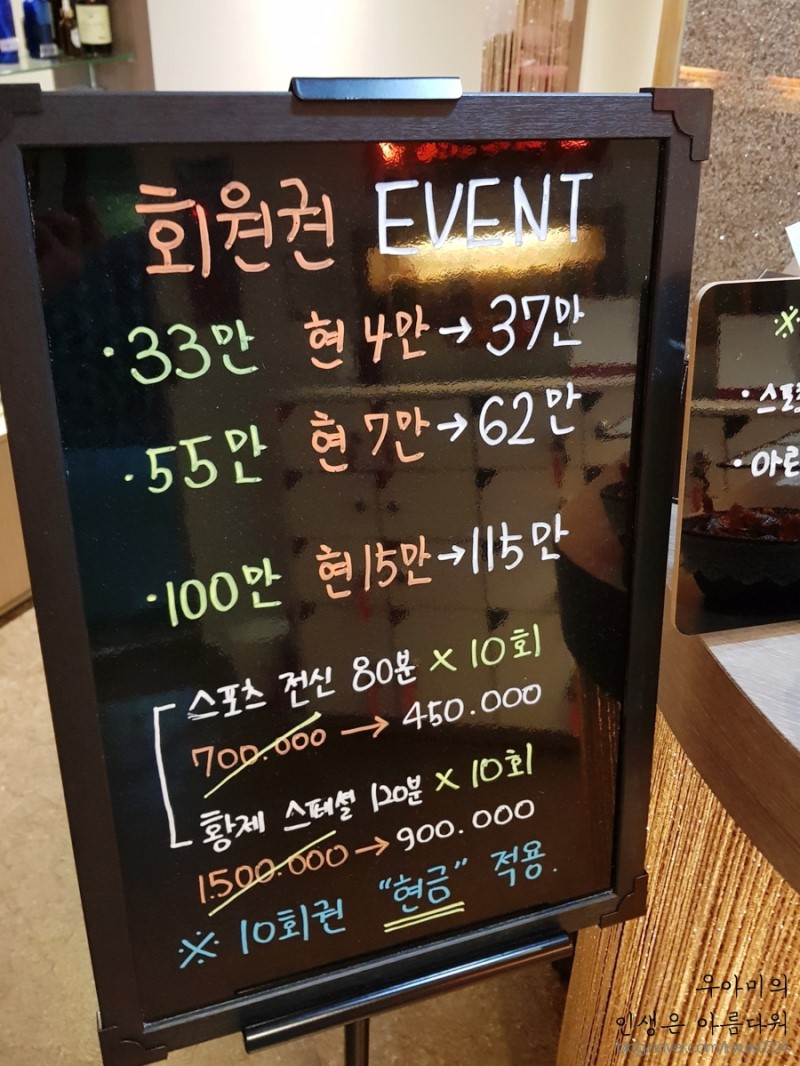 회원권 EVENT
· 33만 현 4만 → 37만
· 55만 현 7만 → 62만
· 100만 현 15만 → 115만
스포츠 전신 80분 X 10회
700.000 → 450.000
황제 스페셜 120분 X 10회
1500.000 → 900.000
※ 10회권 "현금" 적용.
※
· 스포츠
· 아로
우아미의
인생은 아름다워